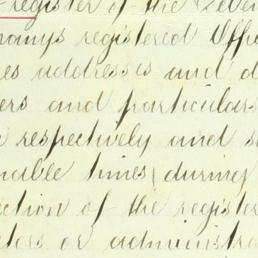 register of the Seven
panys registered Offi
es addresses and d
ers and particulars
respectively and s
nable times (during
ection of the register
ctors or administra